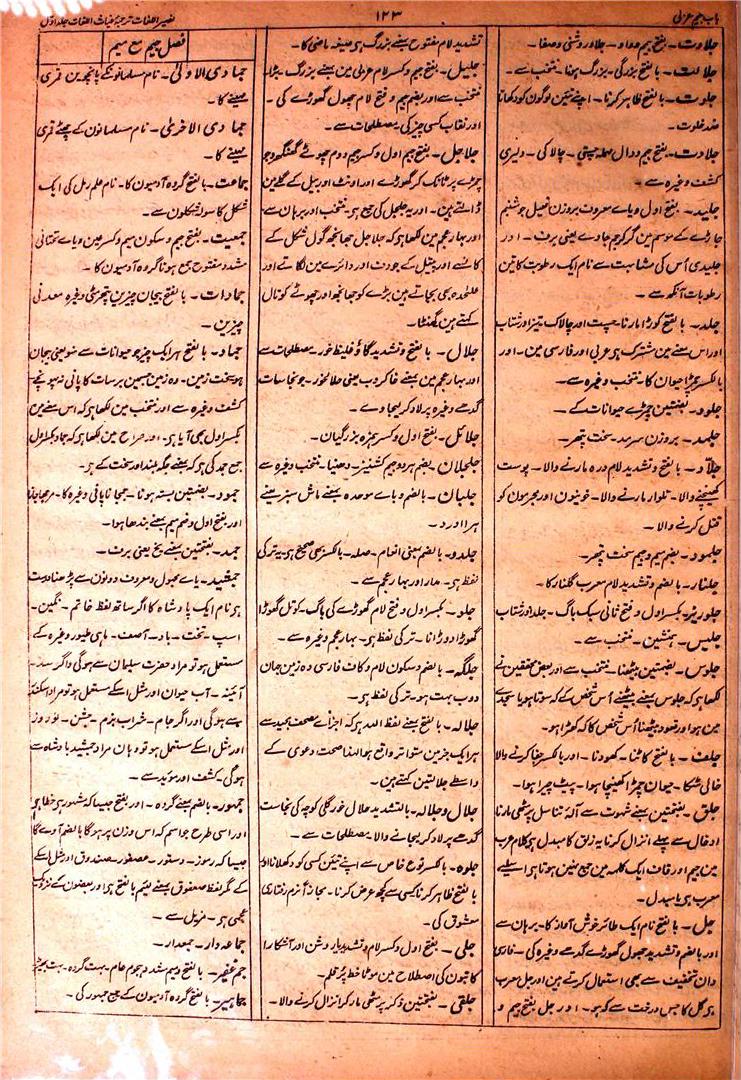 باب جیم عربی
۱۲۳
نصیر اللغات ترجمۂ غیاث اللغات جلد اول
جلاوت۔ بفتح جیم و واو۔ جلا و روشنی و صفا۔
جلالت۔ بالفتح بزرگی۔ بزرگ ہونا۔ منتخب سے۔
جلوت۔ بالفتح ظاہر کرنا۔ اپنے تئین لوگون کو دکھانا
ضد خلوت۔
جلادت۔ بفتح جیم و دال مہملہ چستی۔ چالاکی۔ دلیری
کشف وغیرہ سے۔
جلید۔ بفتح اول و یاے معروف بروزن فعیل جو شبنم
جاڑے کے موسم مین گر کر جم جاوے یعنی برف۔ اور
جلیدی اُس کی مشابہت سے نام ایک رطوبت کا تین
رطوبات آنکھ سے۔
جلد۔ بالفتح کوڑا مارنا۔ چست اور چالاک۔ تیز اور شتاب
اور اس معنے مین مشترک ہی عربی اور فارسی مین۔ اور
بالکسر چمڑا حیوان کا۔ منتخب وغیرہ سے۔
جلود۔ بضمتین چمڑے حیوانات کے۔
جلمد۔ بروزن سرمد۔ سخت پتھر۔
جلاد۔ بالفتح و تشدید لام درہ مارنے والا۔ پوست
کھینچنے والا۔ تلوار مارنے والا۔ خونیون اور مجرمون کو
قتل کرنے والا۔
جلمود۔ بضم جیم و میم سخت پتھر۔
جلنار۔ بالضم و تشدید لام معرب گلنار کا۔
جلو ریز۔ بکسر اول و فتح ثانی سبک باگ۔ جلد اور شتاب
جلیس۔ ہمنشین۔ منتخب سے۔
جلوس۔ بضمتین بیٹھنا۔ منتخب سے اور بعض محققین نے
لکھا ہی کہ جلوس بمعنے بیٹھنے اُس شخص کے کہ سوتا ہو یا سجدے
مین ہو اور قعود بیٹھنا اُس شخص کا کہ کھڑا ہو۔
جلف۔ بالفتح کاٹنا۔ کھودنا۔ اور بالکسر جفا کرنے والا
خالی مٹکا۔ حیوان چمڑا کھینچا ہوا۔ پیٹ چیرا ہوا۔
جلق۔ بفتحتین بمعنے شہوت سے آلۂ تناسل پر مٹھی مارنا
ادخال سے پہلے انزال کرنا یہ زلق کا مبدل ہی کلام عرب
مین جیم اور قاف ایک کلمہ مین جمع نہین ہوتا ہی اسلیے
معرب ہی یا مبدل۔
جل۔ بالفتح نام ایک طائر خوش آواز کا۔ برہان سے
اور بالضم و تشدید جھول گھوڑے گدھے وغیرہ کی۔ فارسی
دان تخفیف سے بھی استعمال کرتے ہین اور جل معرب
ہی گل کا جس درخت سے کہ ہو۔ اور جل بفتح جیم و
تشدید لام مفتوح بمعنے بزرگ ہی صیغہ ماضی کا۔
جلیل۔ بفتح جیم و کسر لام عربی مین بمعنے بزرگ۔ بڑا۔
منتخب سے اور بضم جیم و فتح لام جھول گھوڑے کی۔
اور نقاب کسی چیز کی۔ مصطلحات سے۔
جلاجل۔ بفتح جیم اول و کسر جیم دوم چھوٹے گھنگھرو جو
چمڑے پر ٹانک کر گھوڑے اور اونٹ اور بیل کے گلے مین
ڈالتے ہین۔ اور یہ جلجل کی جمع ہی۔ منتخب اور برہان سے
اور بہار عجم مین لکھا ہی کہ جلاجل جھانجھ گول شکل کے
کانسے اور پیتل کے جو دف اور دائرے مین لگاتے اور
علٰحدہ بھی بجاتے ہین بڑے کو جھانجھ اور چھوٹے کو تال
کہتے ہین گھنٹا۔
جلال۔ بالفتح و تشدید گاؤ غلیظ خور۔ مصطلحات سے
اور بہار عجم مین بمعنے خاکروب یعنی حلالخور۔ جو نجاسات
گدھے وغیرہ پر لاد کر لیجاوے۔
جلائل۔ بفتح اول و کسر ہمزہ بزرگیان۔
جلجلان۔ بضم ہر دو جیم کشنیز۔ دھنیا۔ منتخب وغیرہ سے
جلبان۔ بالضم و باے موحدہ بمعنے ماش سبز یعنے
ہرا اورد۔
جلدو۔ بالضم بمعنی انعام۔ صلہ۔ بالکسر بھی صحیح ہی یہ ترکی
لفظ ہی۔ مدار اور بہار عجم سے۔
جلو۔ بکسر اول و فتح لام گھوڑے کی باگ۔ کوتل گھوڑا
گھوڑا دوڑانا۔ ترکی لفظ ہی۔ بہار عجم وغیرہ سے۔
جلگہ۔ بالضم و سکون لام و کاف فارسی وہ زمین جہان
دوب بہت ہو۔ ترکی لفظ ہی۔
جلالہ۔ بالفتح بمعنے لفظ اللہ ہی کہ اجزاے مصحف مجید سے
ہر ایک جز مین متواتر واقع ہوا لہذا صحت دعوی کے
واسطے جلالتین کہتے ہین۔
جلال و جلالہ۔ بالتشدید حلال خور گلی کوچہ کی نجاست
گدھے پر لاد کر لیجانے والا۔ مصطلحات سے۔
جلوہ۔ بالکسر نوع خاص سے اپنے تئین کسی کو دکھلانا اور
بالفتح ظاہر کرنا کسی سے کچھ عرض کرنا۔ مجازاً نرم رفتاری
معشوق کی۔
جلی۔ بفتح اول و کسر لام و تشدید یا روشن اور آشکارا
کاتبون کی اصطلاح مین موٹا خط پُر قلم۔
جلقی۔ بفتحتین ذکر پر مٹھی مار کر انزال کرنے والا۔
فصل جیم مع میم
جمادی الاولیٰ۔ نام مسلمانونکے پانچوین قمری
مہینے کا۔
جمادی الاخریٰ۔ نام مسلمانون کے چھٹے قمری
مہینے کا۔
جماعت۔ بالفتح گروہ آدمیون کا۔ نام علم رمل کی ایک
شکل کا سولہ شکلون سے۔
جمعیت۔ بفتح جیم و سکون میم و کسر عین و یاے تحتانی
مشدد مفتوح جمع ہونا گروہ آدمیون کا۔
جمادات۔ بالفتح بیجان چیزین پتھر مٹی وغیرہ معدنی
چیزین۔
جماد۔ بالفتح ہر ایک چیز جو حیوانات سے نہو یعنی بیجان
ہو سخت زمین۔ وہ زمین جسمین برسات کا پانی نہ پہونچے
کشف وغیرہ سے اور منتخب مین لکھا ہی کہ اس معنے مین
بکسر اول بھی آیا ہی۔ اور صراح مین لکھا ہی کہ جماد بکسر اول
جمع جمد کی ہی کہ بمعنے جگہ بلند اور سخت کے ہی۔
جمود۔ بضمتین بستہ ہونا۔ جمجانا پانی وغیرہ کا۔ مرجھا جانا
اور بفتح اول و ضم میم بمعنے بندھا ہوا۔
جمد۔ بفتحتین بمعنے یخ یعنی برف۔
جمشید۔ یاے مجہول و معروف دونون سے پڑھنا درست
ہی نام ایک پادشاہ کا اگر ساتھ لفظ خاتم۔ نگین۔
اسپ۔ تخت۔ باد۔ آصف۔ ماہی طیور وغیرہ کے
مستعمل ہو تو مراد حضرت سلیمان سے ہوگی و اگر سد۔
آئینہ۔ آب حیوان اور مثل اسکے مستعمل ہو تو مراد سکندر
سے ہوگی اور اگر جام۔ شراب بزم۔ جشن۔ نوروز
اور مثل اسکے مستعمل ہو تو وہان مراد جمشید بادشاہ سے
ہوگی۔ کشف اور مؤید سے۔
جمہور۔ بالضم بمعنے گروہ۔ اور بفتح جیسا کہ مشہور ہی خطا ہی
اور اسی طرح جو اسم کہ اس وزن پر ہوگا بالضم آوے گا
جیسا کہ رموز۔ دستور۔ عصفور۔ صندوق اور مثل اسکے
کے مگر لفظ صعفوق بمعنے لئیم بالفتح ہی اور بعضون کے نزدیک
عجمی ہی۔ مزیل سے۔
جماعہ دار۔ جمعدار۔
جم غفیر۔ بالفتح و میم مشدد ہجوم عام۔ بہت گروہ۔ بہت بھیڑ
جماہیر۔ بالفتح گروہ آدمیون کے جمع جمہور کی۔